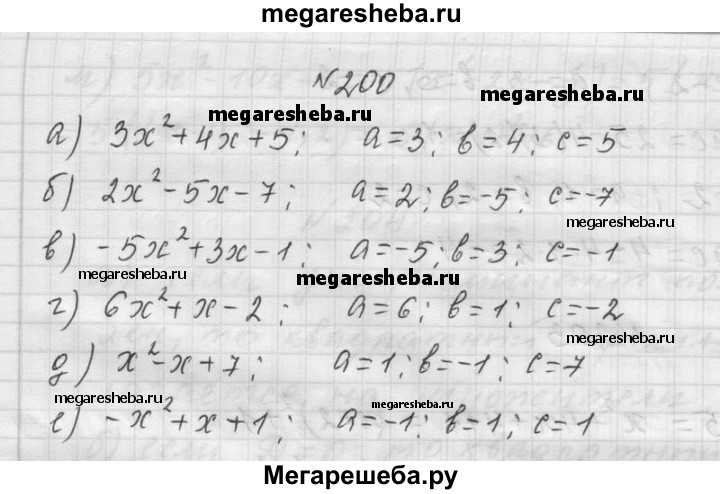 megaresheba.ru
№200
megaresheba.ru
megaresheba.ru
а) 3x²+4x+5; a=3; b=4; c=5
б) 2x²-5x-7; a=2; b=-5; c=-7
megaresheba.ru
в) -5x²+3x-1; a=-5; b=3; c=-1
megaresheba.ru
megaresheba.ru
г) 6x²+x-2; a=6; b=1; c=-2
д) x²-x+7; a=1; b=-1; c=7
megaresheba.ru
megaresheba.ru
е) -x²+x+1; a=-1; b=1; c=1
Мегарешеба.ру